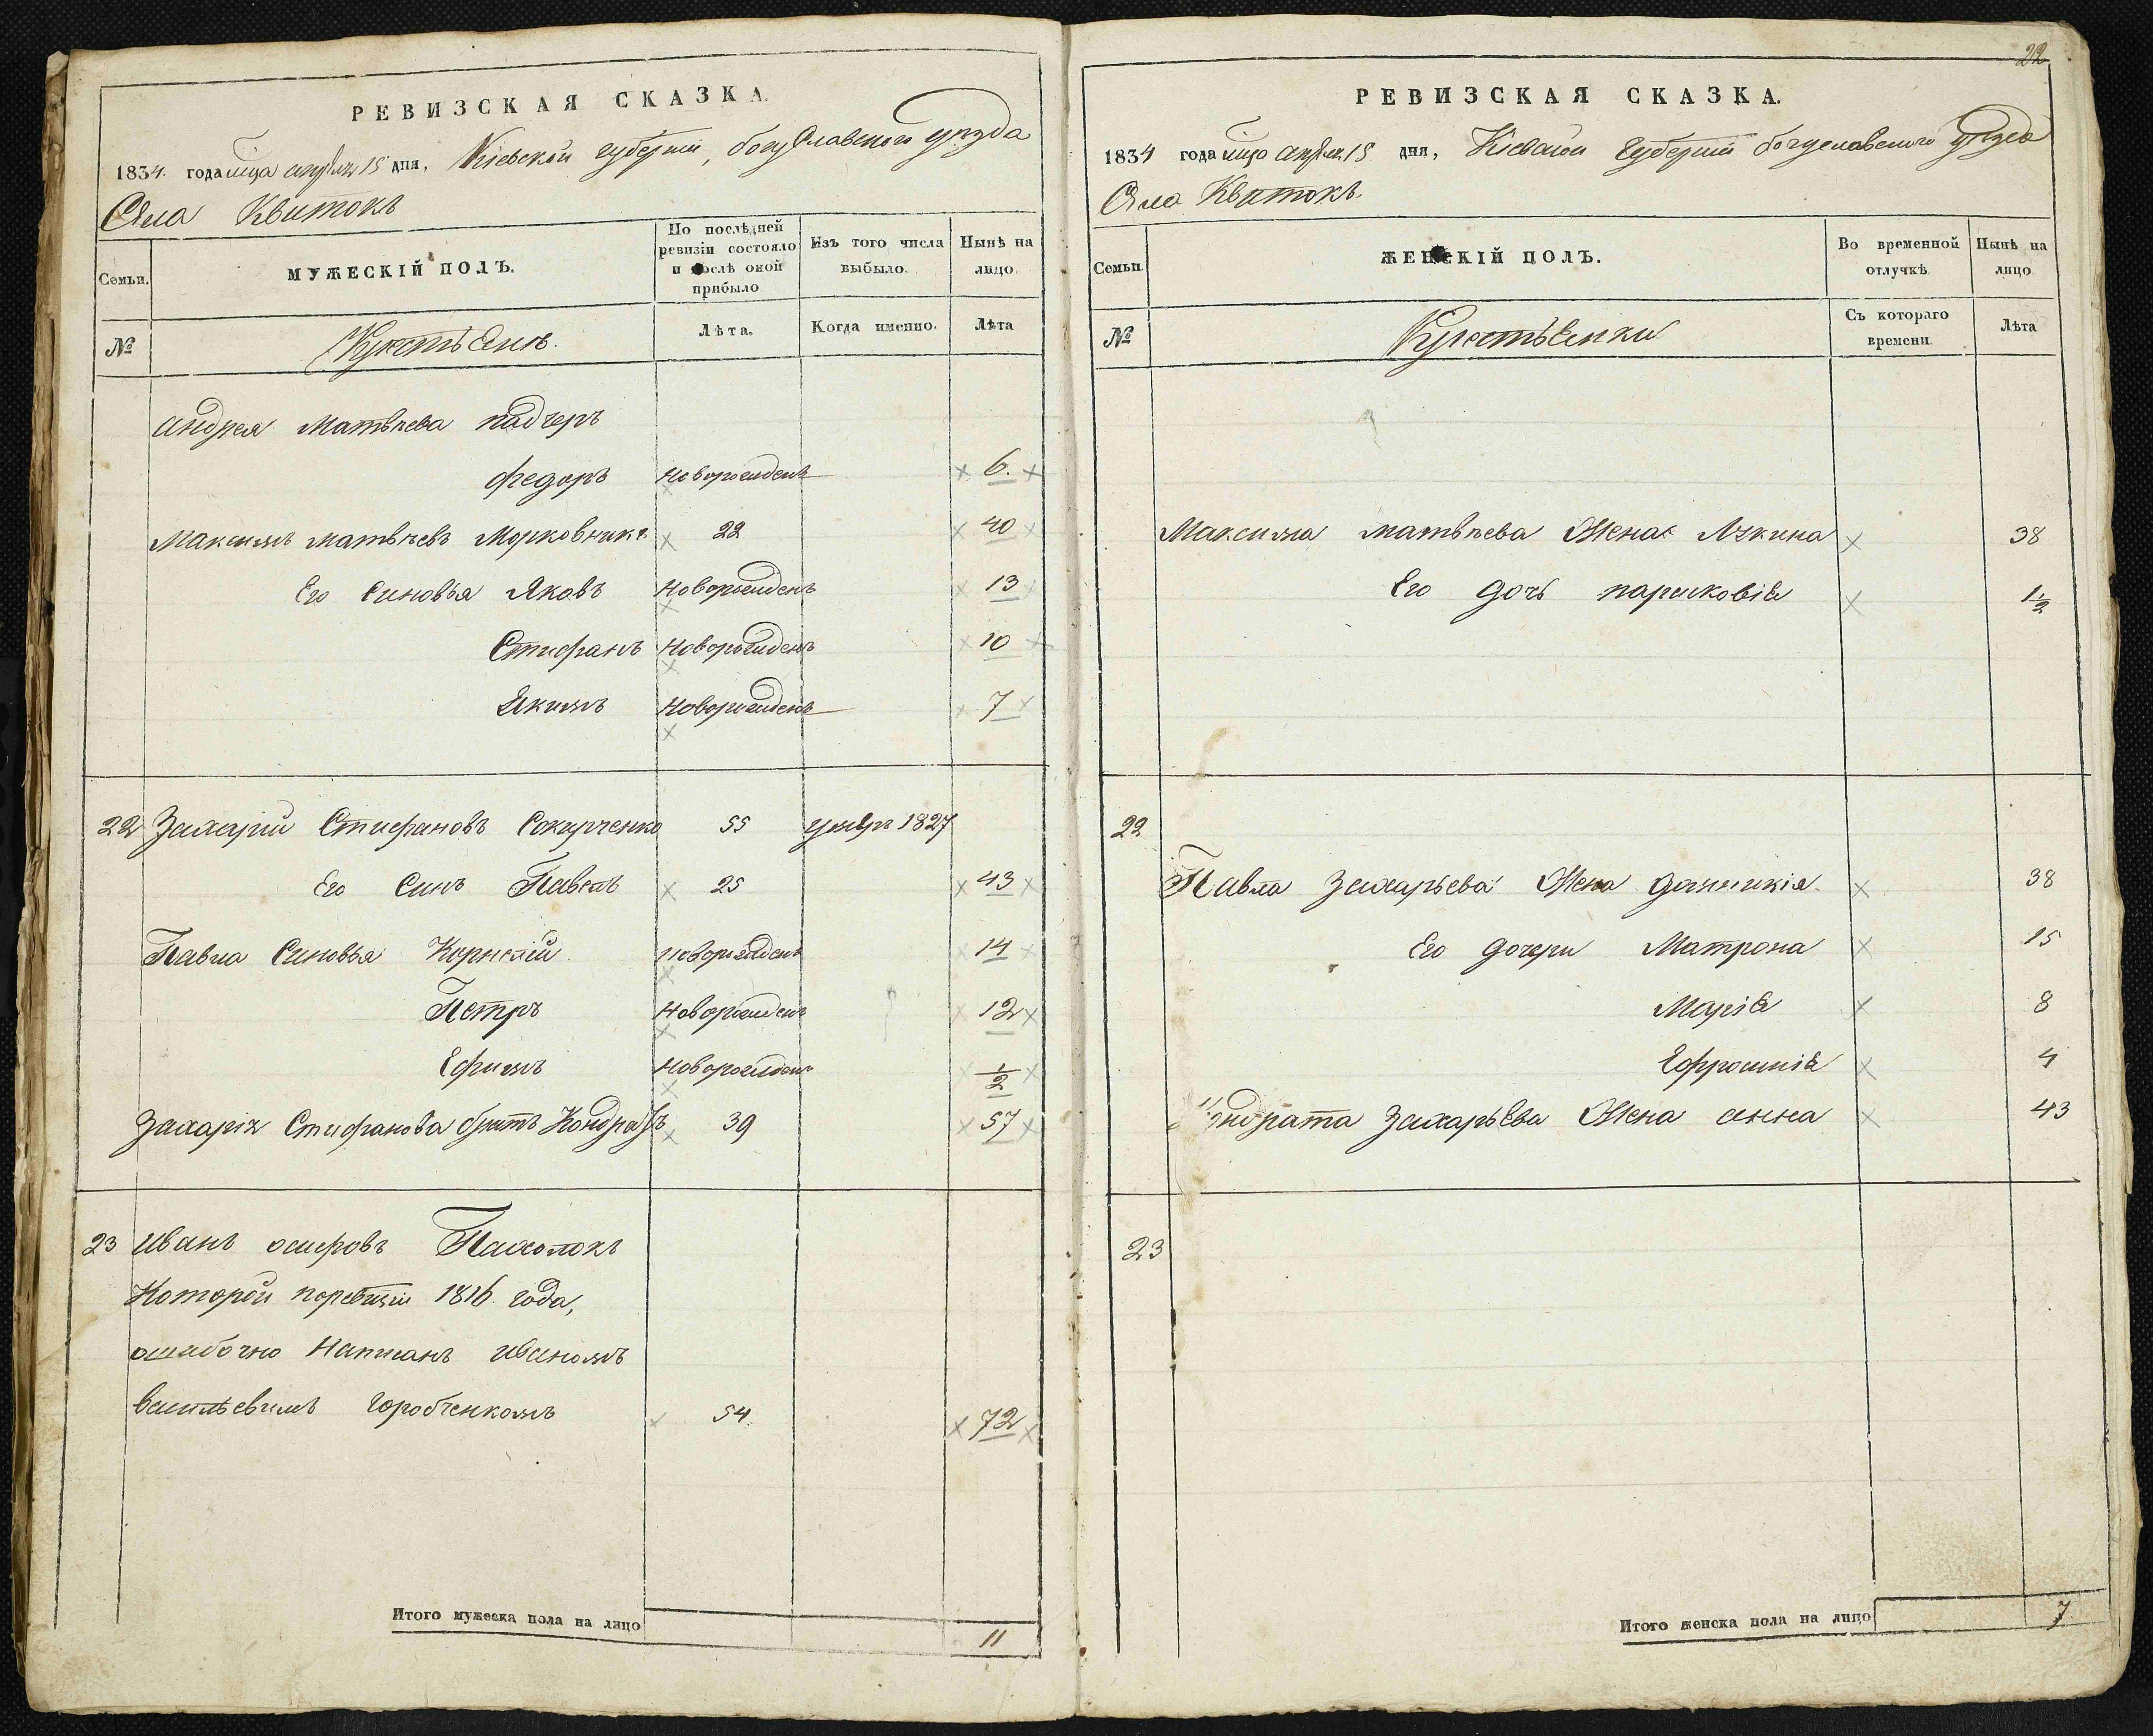 РЕВИЗСКАЯ СКАЗКА.
1834. года мца апреля 15 дня, Кіевской губерніи, богуславского уезда
Села Квитокъ
Семьи.
МУЖЕСКІЙ ПОЛЪ.
По послѣдней ревизіи состояло и послѣ оной прибыло
Изъ того числа выбыло.
Нынѣ на лицо
№
Крестьянъ.
Лѣта.
Когда именно.
Лѣта
андрея Матвеева
федоръ новорожденъ 6.
Максимъ матвеевъ Морковникъ 22 40
Его синовья Яковъ новорожденъ 13
Стефанъ новорожденъ 10
Якимъ новорожденъ 7
22 Захарій Стефановъ Сокурченко 55 умеръ 1827
Его Синъ Павелъ 25 43
Павла Синовья Корнелій новорожденъ 14
Петръ новорожденъ 12
Ефимъ новорожденъ 1/2
Захарія Стефанова братъ Кондратъ 39 57
23 Иванъ осиповъ Пахолокъ
Которой поревизіи 1816 года,
ошибочно написанъ иваномъ
васильевимъ горобченкомъ 54. 72
Итого мужеска пола на лицо 11
22
РЕВИЗСКАЯ СКАЗКА.
1834 года мца апреля 15 дня, Кіевской губерніи богуславского уезда
Села Квитокъ.
Семьи.
ЖЕНСКІЙ ПОЛЪ.
Во временной отлучкѣ
Нынѣ на лицо
№
Крестьянки
Съ котораго времени
Лѣта
Максима матвеева Жена 38
Его дочь парасковія 1 1/2
22
Павла Захарьева Жена 38
Его дочери Матрона 15
Марія 8
Ефросинія 4
Кондрата Захарьева Жена анна 43
23
Итого женска пола на лицо 7